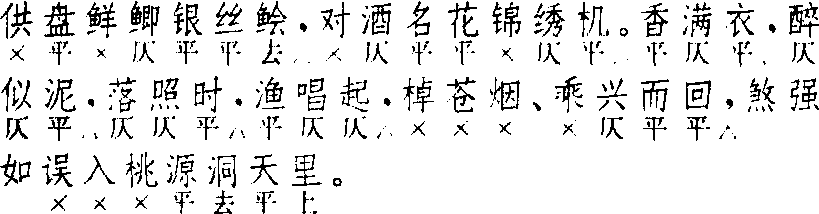 供盘鲜鲫银丝鲙，对酒名花锦绣机。香满衣，醉
× 平 × 仄 平 平 去 × 仄 平 平 × 仄 平 平 仄 平 仄
似泥，落照时，渔唱起，棹苍烟、乘兴而回，煞强
仄 平 仄 仄 平 平 仄 仄 × × × × 仄 平 平
如误入桃源洞天里。
× × × 平 去 平 上